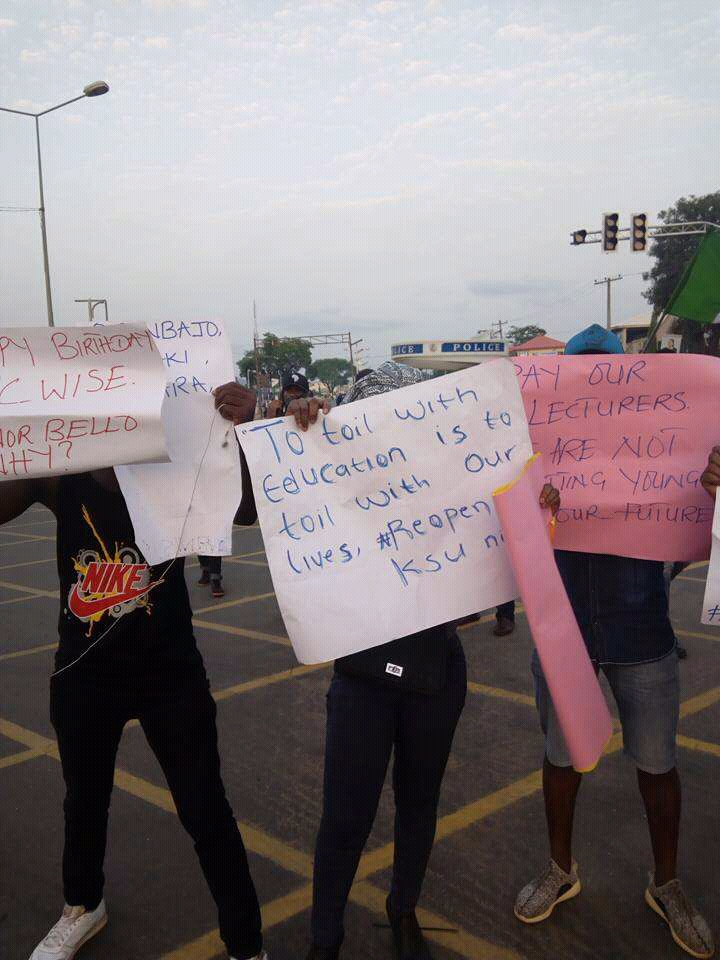 PY BIRTHDAY
C WISE.
NOR BELLO
WHY?
NBAJO,
KI,
RA,
NIKE
"To toil with
Education is to
toil with our
lives, #Reopen
KSU n
PAY OUR
LECTURERS.
ARE NOT
TING YOUNG
OUR FUTURE
ICE
POLICE
#